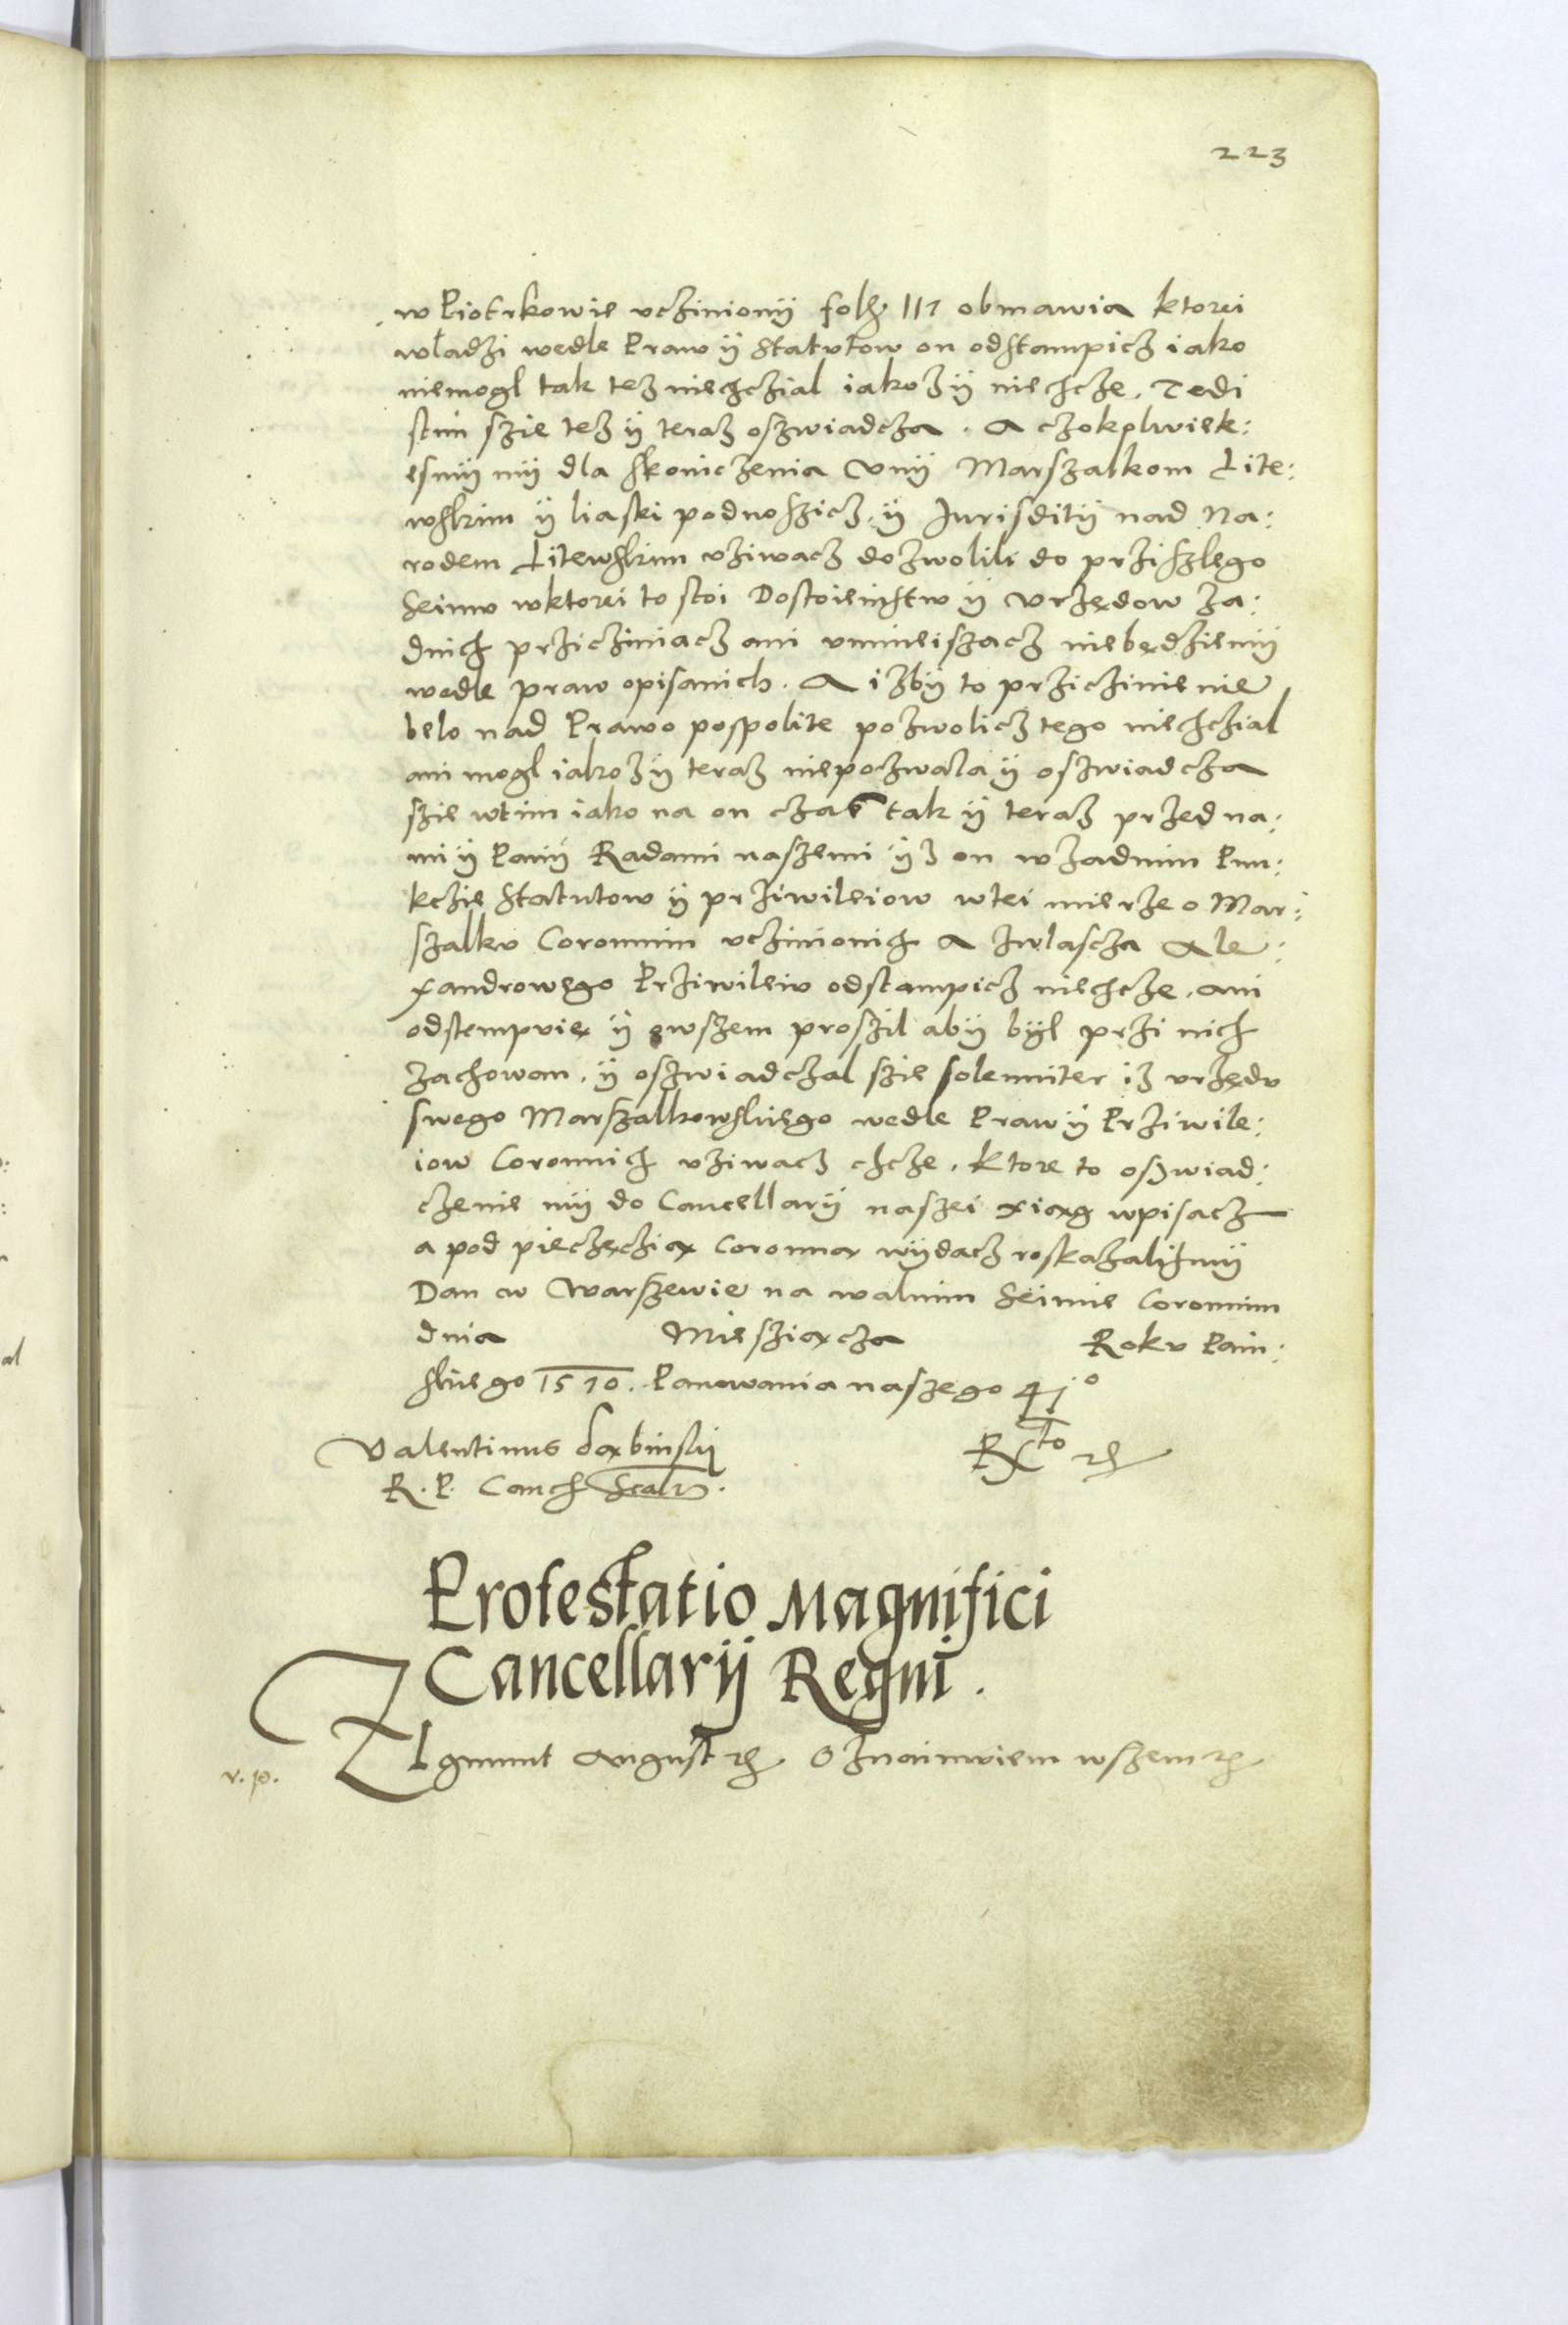 223
w Piotrkowie vcżinionÿ folȝ 117 obmawia ktorei
władżi wedle Praw ÿ Statvtow on odstampicz iako
niemogl tak tez niechcżial iakoz ÿ niechcże. Tedi
stim szie tez ÿ teraz oszwiadcza. A czokolwiek:
esmÿ mÿ dla skoniczenia Vnÿ Marszalkom Lite:
wskim ÿ liaski podnoszicz, ÿ Jurisditÿ nad Na:
rodem Litewskim vżiwacz dozwolili do prżiszlego
Seimv wktorei to stoi Dostoieinstw ÿ Vrżędow ża:
dnich prżicżiniacz ani vmnieiszacz niebędżiemÿ
wedle praw opisanich. A iżbÿ to prżicżinienie
belo nad Prawo pospolite pozwolicz tego niechcżial
ani mogl iakoz ÿ teraz niepozwala ÿ oszwiadcza
szie wtim iako na on czas tak ÿ teraz przed na:
mi ÿ Panÿ Radami naszemi ÿz on w żadnim Pun:
kcżie Statutow ÿ prżiwileiow wtei mierże o Mar:
szalkv Coronnim vcżinionich A zwlascza Ale:
xandrowego Prżiwileiv odstampicz niechcże, ani
odstempvie ÿ owszem proszil abÿ bÿl prżi nich
zachowan, ÿ oszwiadczal szie solenniter iz vrżędv
swego Marszalkowskiego wedle Praw ÿ Prżiwile:
iow Coronnich vżiwacz chcże. Ktore to oszwiad:
czenie mÿ do Cancellarÿ naszei xiąg wpisacz
a pod pieczęcżią Coronną wÿdacz roskazalismÿ
Dan w Warszewie na walnim Seimie Coronnim
dnia Miesziącza Rokv Pain:
skiego 1570. Panowania naszego 41°
Valentinus Dąbinskÿ
R. P. Canch
Protestatio Magnifici
Cancellarij Regni.
ZIgmunt August etc. Oznaimviem wszem etc.
v. p.